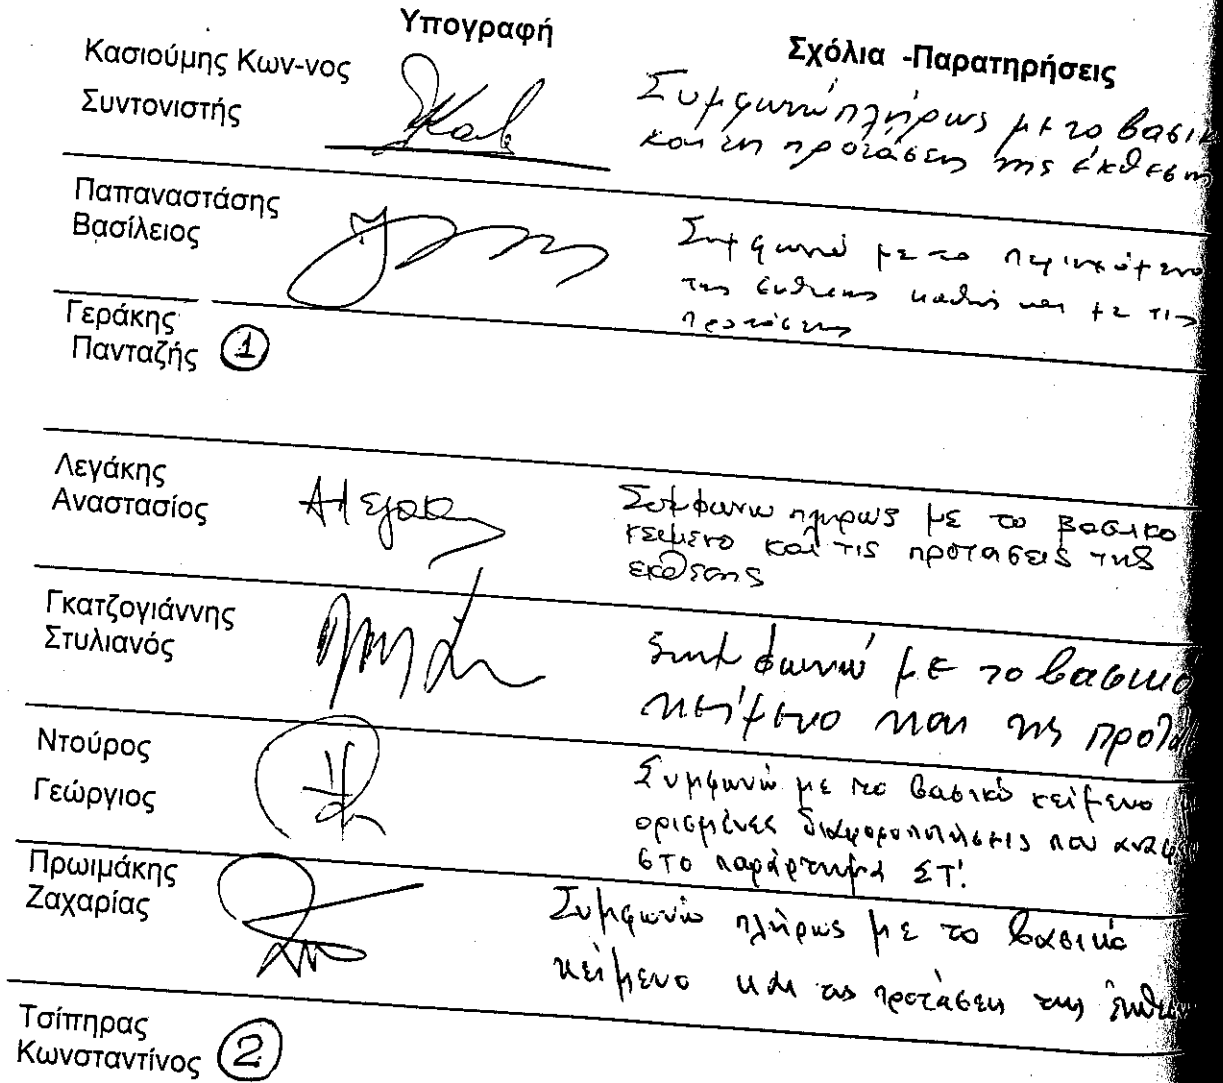 Υπογραφή
Σχόλια -Παρατηρήσεις
Κασιούμης Κων-νος
Συντονιστής
Συμφωνώ πλήρως με το βασικ
και τις προτάσεις της έκθεσης
Παπαναστάσης
Βασίλειος
Συμφωνώ με το περιεχόμενο
της έκθεσης καθώς και με τις
προτάσεις
Γεράκης
Πανταζής 1
Λεγάκης
Αναστασίος
Συμφωνω πληρως με το βασικο
κειμενο και τις προτασεις της
εκθεσης
Γκατζογιάννης
Στυλιανός
Συμφωνώ με το βασικό
κείμενο και τις προτα
Ντούρος
Γεώργιος
Συμφωνώ με το βασικό κείμενο
ορισμένες διαφοροποιήσεις που αναφ
στο παράρτημα ΣΤ'.
Πρωιμάκης
Ζαχαρίας
Συμφωνώ πλήρως με το βασικό
κείμενο και τις προτάσεις της έκθεσ
Τσίπηρας
Κωνσταντίνος 2